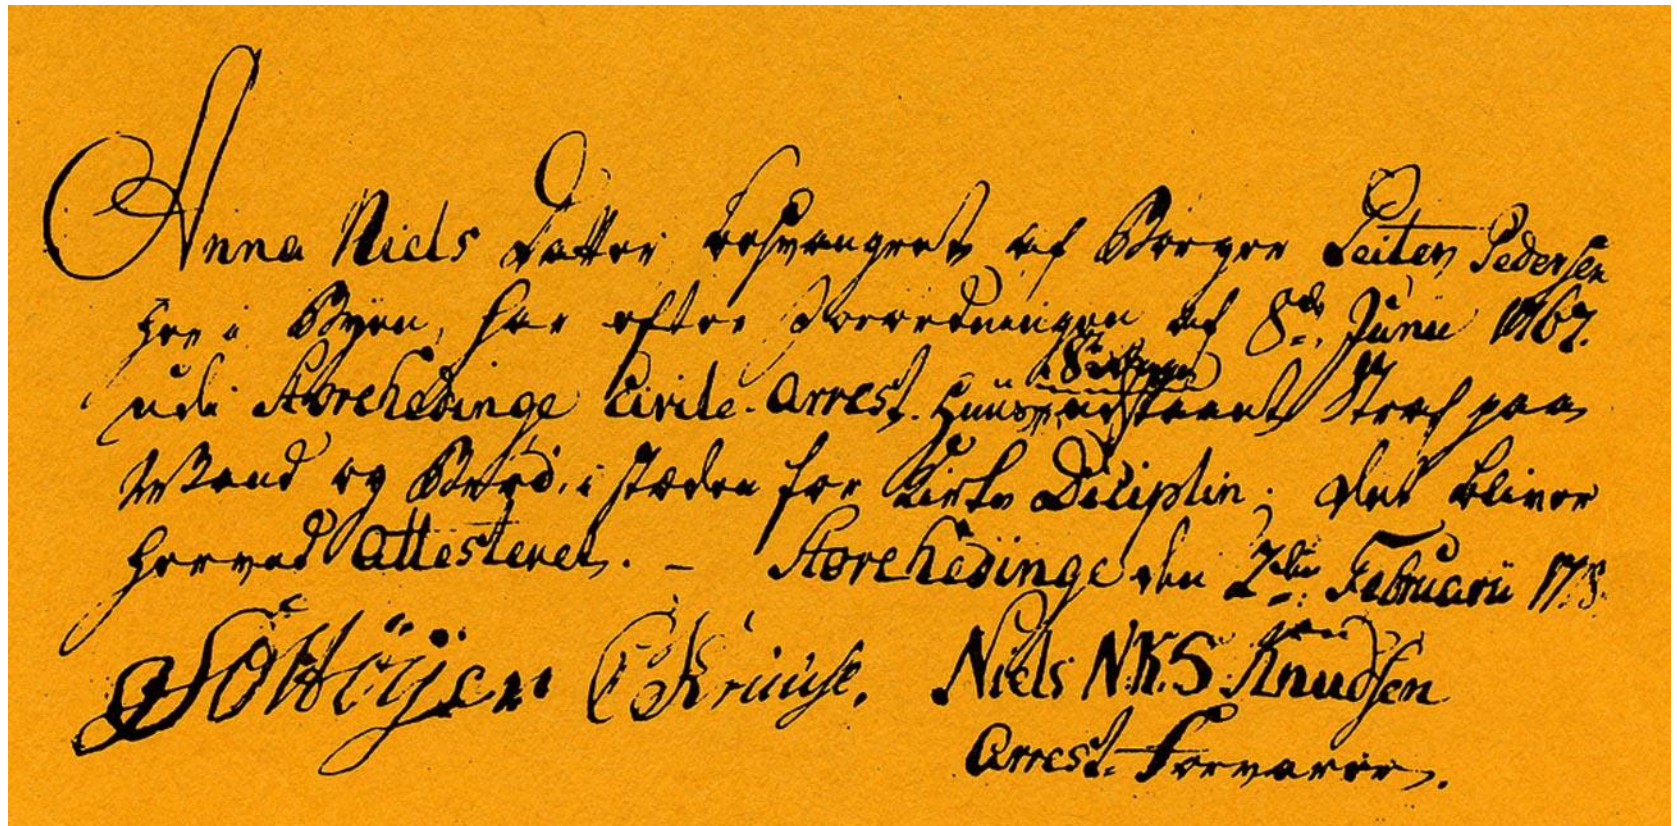 Anna Niels Datter besvangret af Borger Peiter Pedersen
her i Byen, har efter Forordningen af 8de Junii 1767.
udi Storehedinge Civile Arrest Huus udstaaet Straf paa
8te Dage
Vand og Brød, i stæden for Kirke Diciplin; det bliver
herved Attesteret. – Storehedinge den 2den Februarii
C Kruuse. Niels N.K.S. Knudsen
Arrest-Forvarer.